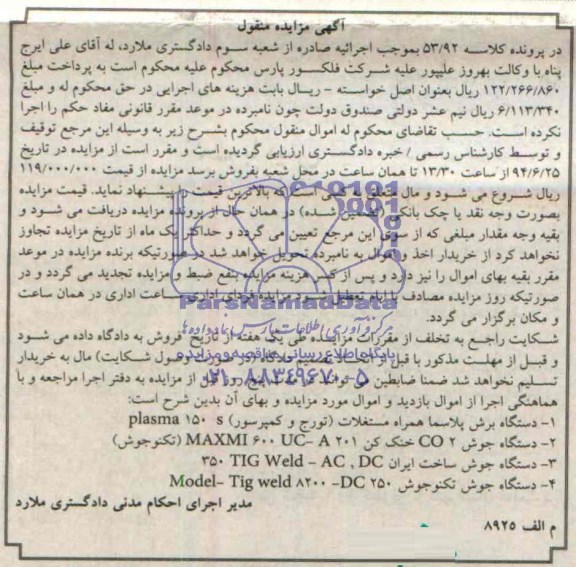 آگهی مزایده منقول
در پرونده کلاسه ۵۳/۹۲ بموجب اجرائیه صادره از شعبه سوم دادگستری ملارد، له آقای علی ایرج
پناه با وکالت بهروز علیپور علیه شرکت فلکسور پارس محکوم علیه محکوم است به پرداخت مبلغ
۱۲۲/۲۶۶/۸۶۰ ریال بعنوان اصل خواسته - ریال بابت هزینه های اجرایی در حق محکوم له و مبلغ
۶/۱۱۳/۳۴۰ ریال نیم عشر دولتی صندوق دولت چون نامبرده در موعد مقرر قانونی مفاد حکم را اجرا
نکرده است. حسب تقاضای محکوم له اموال منقول محکوم بشرح زیر به وسیله این مرجع توقیف
و توسط کارشناس رسمی / خبره دادگستری ارزیابی گردیده است و مقرر است از مزایده در تاریخ
۹۴/۶/۲۵ از ساعت ۱۳/۳۰ تا همان ساعت در محل شعبه بفروش برسد مزایده از قیمت ۱۱۹/۰۰۰/۰۰۰
ریال شروع می شود و مال متعلق به کسی است که بالاترین قیمت را پیشنهاد نماید. قیمت مزایده
بصورت وجه نقد یا چک بانکی (تضمین شده) در همان حال از برنده مزایده دریافت می شود و
بقیه وجه مقدار مبلغی که از سوی این مرجع تعیین می گردد و حداکثر یک ماه از تاریخ مزایده تجاوز
نخواهد کرد از خریدار اخذ و اموال به نامبرده تحویل خواهد شد در صورتیکه برنده مزایده در موعد
مقرر بقیه بهای اموال را نپردازد و پس از کسر هزینه مزایده بنفع ضبط و مزایده تجدید می گردد و در
صورتیکه روز مزایده مصادف با ایام تعطیل شود مزایده فردای اداری ساعت اداری در همان ساعت
و مکان برگزار می گردد.
شکایت راجع به تخلف از مقررات مزایده طی یک هفته از تاریخ فروش به دادگاه داده می شود
و قبل از مهلت مذکور با قبل از اتخاذ تصمیم دادگاه (در صورت وصول شکایت) مال به خریدار
تسلیم نخواهد شد ضمنا ضابطین می توانند پنج روز قبل از مزایده به دفتر اجرا مراجعه و با
هماهنگی اجرا از اموال بازدید و اموال مورد مزایده و بهای آن بدین شرح است:
۱- دستگاه برش پلاسما همراه مستغلات (تورج و کمپرسور) plasma ۱۵۰ s
۲- دستگاه جوش CO ۲ خنک کن MAXMI ۶۰۰ UC- A ۲۰۱ (تکنوجوش)
۳- دستگاه جوش ساخت ایران ۳۵۰ TIG Weld - AC , DC
۴- دستگاه جوش تکنوجوش Model- Tig weld ۸۲۰۰ -DC ۲۵۰
مدیر اجرای احکام مدنی دادگستری ملارد
م الف ۸۹۲۵
ParsNamadData
مرکز فرآوری اطلاعات پارس نماد داده ها
پایگاه اطلاع رسانی مناقصه و مزایده
۰۲۱-۸۸۳۴۹۶۷۰-۵